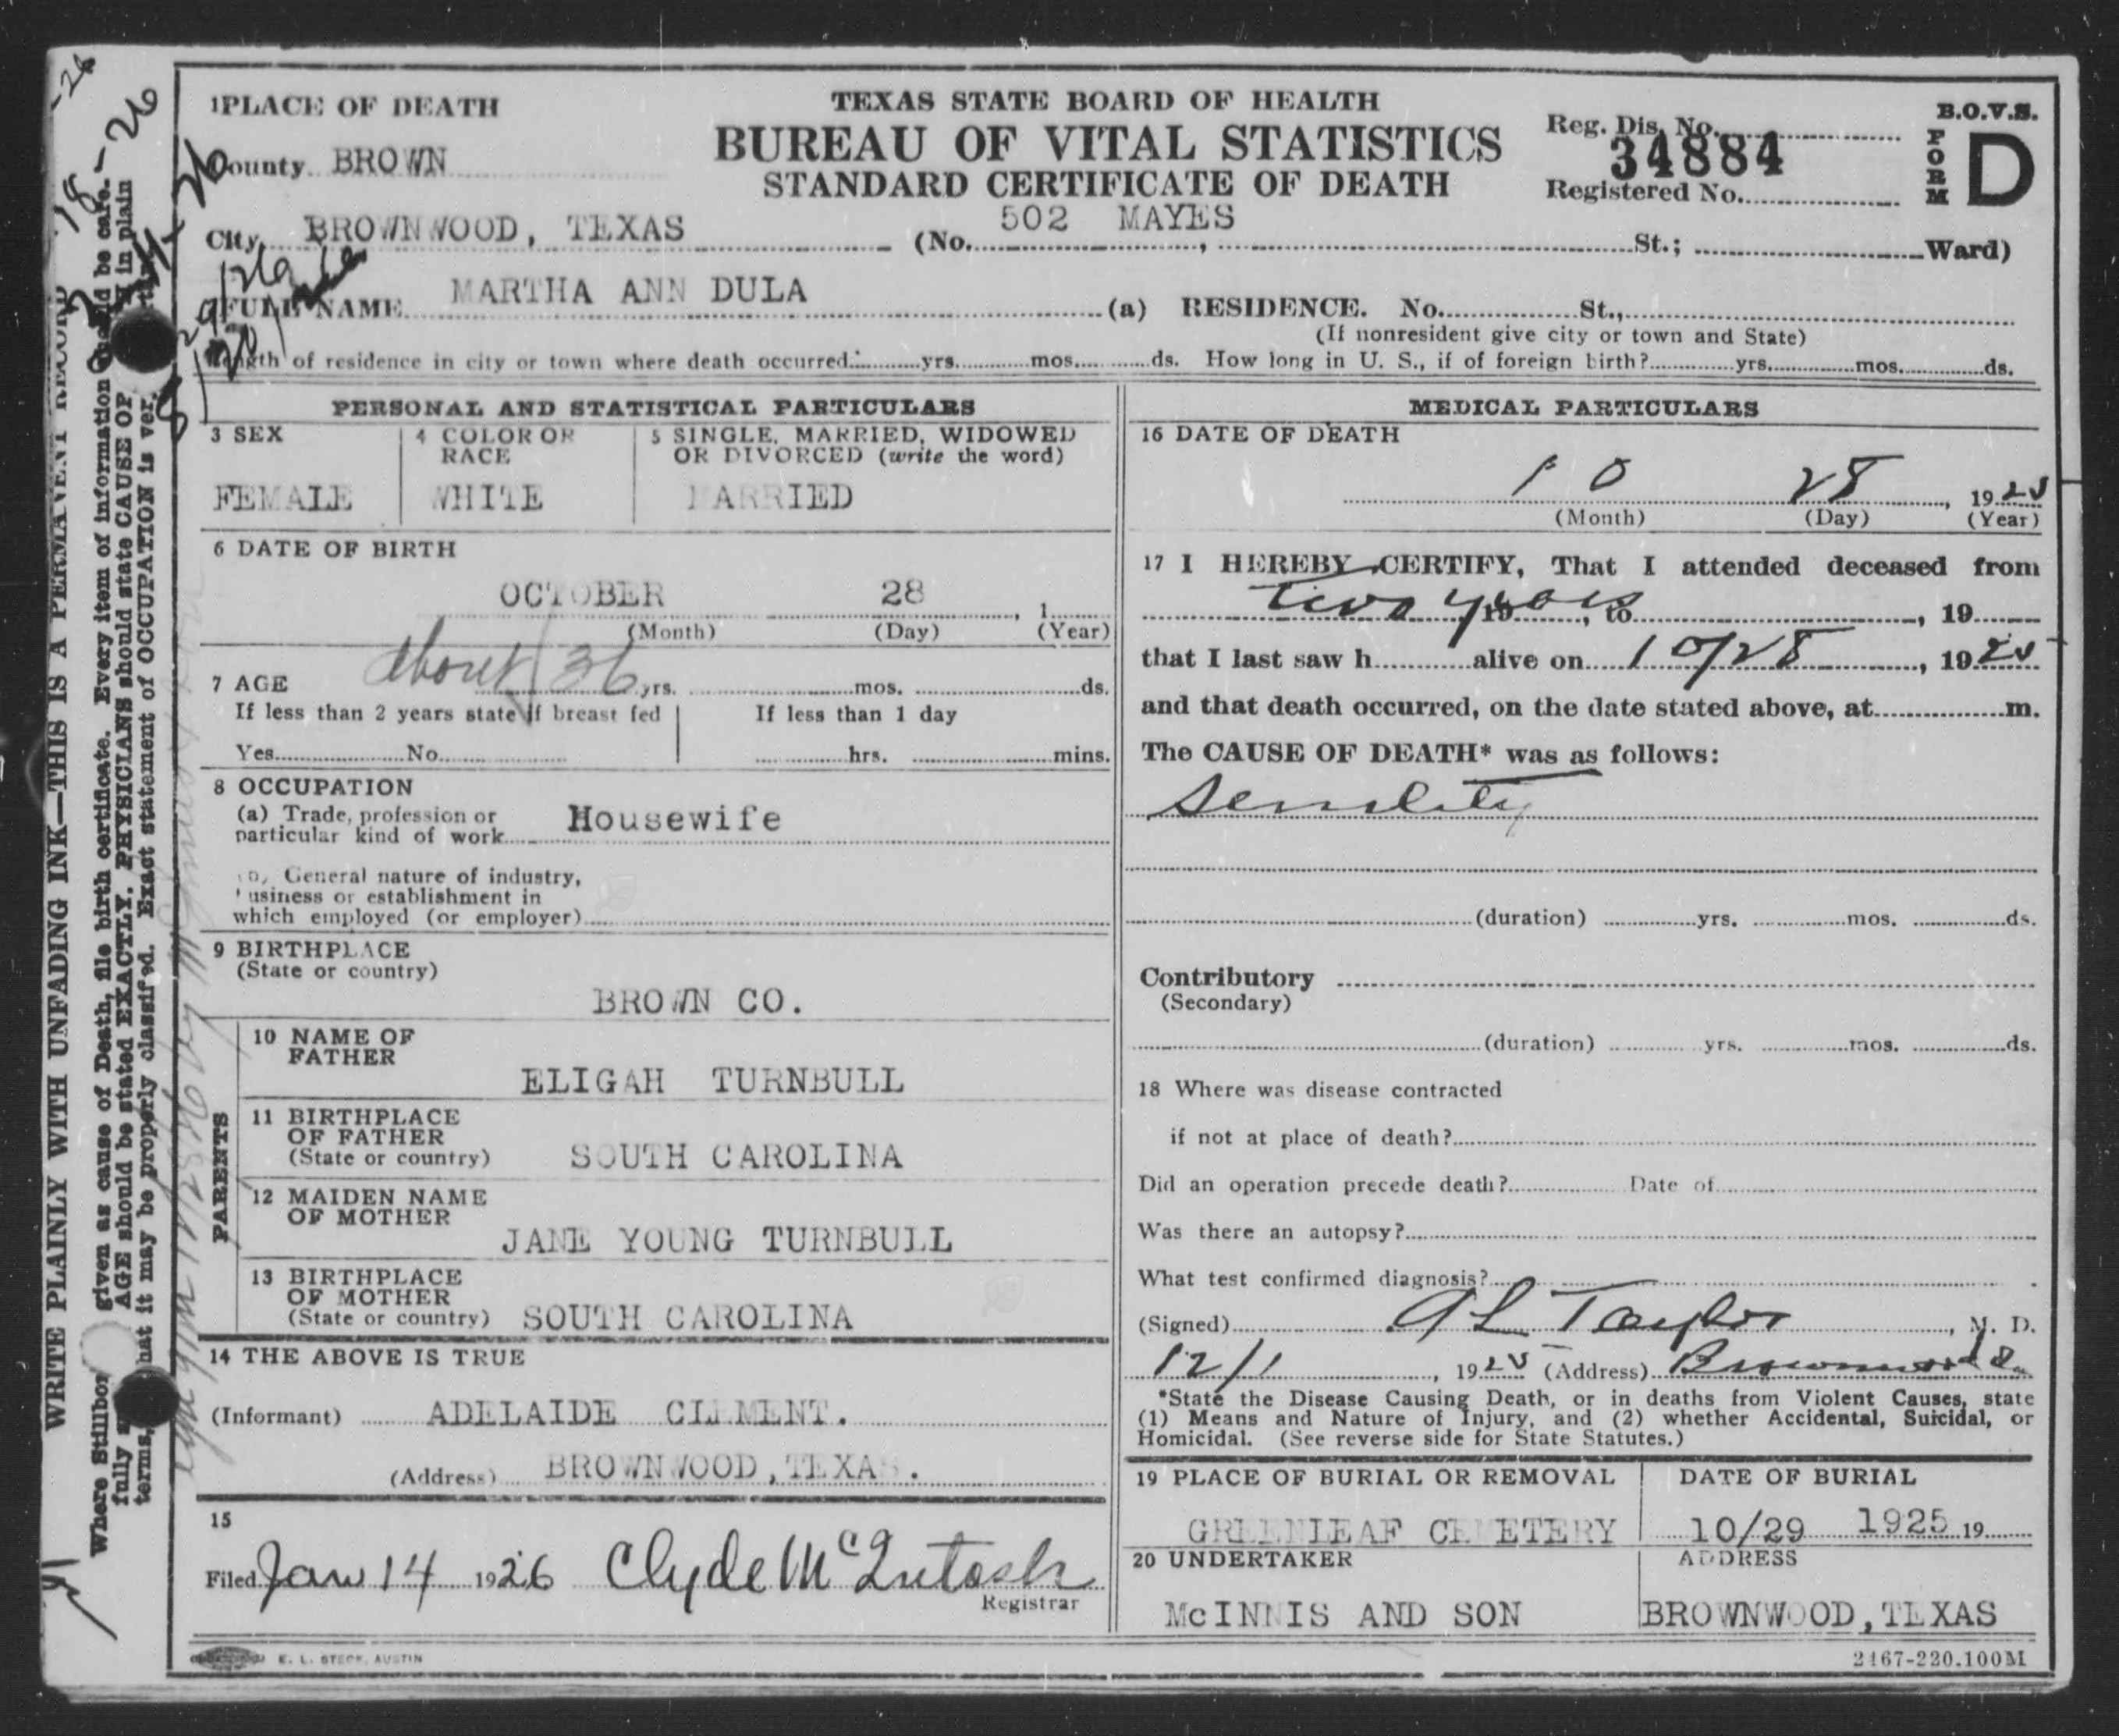 TEXAS STATE BOARD OF HEALTH
BUREAU OF VITAL STATISTICS
STANDARD CERTIFICATE OF DEATH
B.O.V.S.
FORM D
Reg. Dis. No.
34884
Registered No.
1 PLACE OF DEATH
County BROWN
City BROWNWOOD, TEXAS (No. 502 MAYES St.; Ward)
FULL NAME MARTHA ANN DULA (a) RESIDENCE. No. St.,
(If nonresident give city or town and State)
Length of residence in city or town where death occurred. yrs. mos. ds. How long in U. S., if of foreign birth? yrs. mos. ds.
PERSONAL AND STATISTICAL PARTICULARS
3 SEX
FEMALE
4 COLOR OR RACE
WHITE
5 SINGLE, MARRIED, WIDOWED
OR DIVORCED (write the word)
MARRIED
6 DATE OF BIRTH
OCTOBER 28, 1
(Month) (Day) (Year)
7 AGE about 36 yrs. mos. ds.
If less than 2 years state if breast fed
If less than 1 day
Yes No
hrs. mins.
8 OCCUPATION
(a) Trade, profession or
particular kind of work Housewife
General nature of industry,
business or establishment in
which employed (or employer)
9 BIRTHPLACE
(State or country)
BROWN CO.
PARENTS
10 NAME OF
FATHER
ELIGAH TURNBULL
11 BIRTHPLACE
OF FATHER
(State or country) SOUTH CAROLINA
12 MAIDEN NAME
OF MOTHER
JANE YOUNG TURNBULL
13 BIRTHPLACE
OF MOTHER
(State or country) SOUTH CAROLINA
14 THE ABOVE IS TRUE
(Informant) ADELAIDE CLEMENT.
(Address) BROWNWOOD, TEXAS.
15
Filed Jan 14 1926 Clyde McIntosh
Registrar
E. L. STECK, AUSTIN
MEDICAL PARTICULARS
16 DATE OF DEATH
10 28, 1925
(Month) (Day) (Year)
17 I HEREBY CERTIFY, That I attended deceased from
two years 19, to, 19
that I last saw h alive on 10/28, 1925
and that death occurred, on the date stated above, at m.
The CAUSE OF DEATH* was as follows:
Senility
(duration) yrs. mos. ds.
Contributory
(Secondary)
(duration) yrs. mos. ds.
18 Where was disease contracted
if not at place of death?
Did an operation precede death? Date of
Was there an autopsy?
What test confirmed diagnosis?
(Signed) Taylor, M. D.
12/1, 1925 (Address) Brownwood
*State the Disease Causing Death, or in deaths from Violent Causes, state
(1) Means and Nature of Injury, and (2) whether Accidental, Suicidal, or
Homicidal. (See reverse side for State Statutes.)
19 PLACE OF BURIAL OR REMOVAL
GREENLEAF CEMETERY
DATE OF BURIAL
10/29 1925 19
20 UNDERTAKER
McINNIS AND SON
ADDRESS
BROWNWOOD, TEXAS
2167-220.100M
WRITE PLAINLY WITH UNFADING INK—THIS IS A PERMANENT RECORD
given as cause of Death, file birth certificate. Every item of information should be care-
AGE should be stated EXACTLY. PHYSICIANS should state CAUSE OF in plain
terms, that it may be properly classified. Exact statement of OCCUPATION is